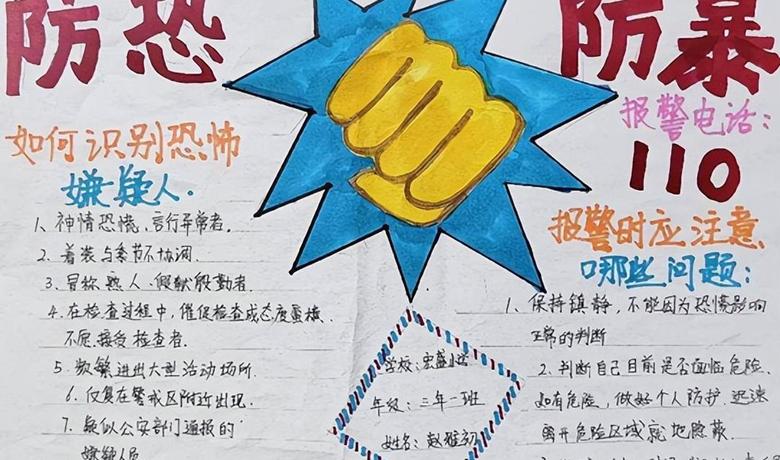 防恐
防暴
如何识别恐怖
嫌疑人.
1、神情恐慌、言行异常者.
2. 着装与季节不协调.
3、冒称熟人、假献殷勤者.
4、在检查过程中,催促检查或态度蛮横、
不愿接受检查者.
5. 频繁进出大型活动场所.
6. 仅复在警戒区附近出现.
7. 疑似公安部门通报的
嫌疑人员
学校:宏盛小学
年级:三年一班
姓名:赵雅
报警电话:
110
报警时应注意
哪些问题:
1、保持镇静,不能因为恐慌影响
正常的判断
2. 判断自己目前是否面临危险.
如有危险,做好个人防护.迅速
离开危险区域就地隐蔽.